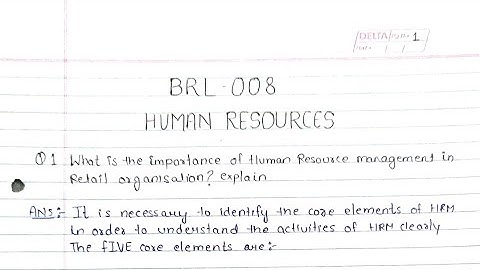 DELTA 1
BRL-008
HUMAN RESOURCES
Q1 What is the importance of Human Resource management in
Retail organisation? explain
ANS:- It is necessary to identify the core elements of HRM
in order to understand the activities of HRM clearly
The fIVE core elements are:-